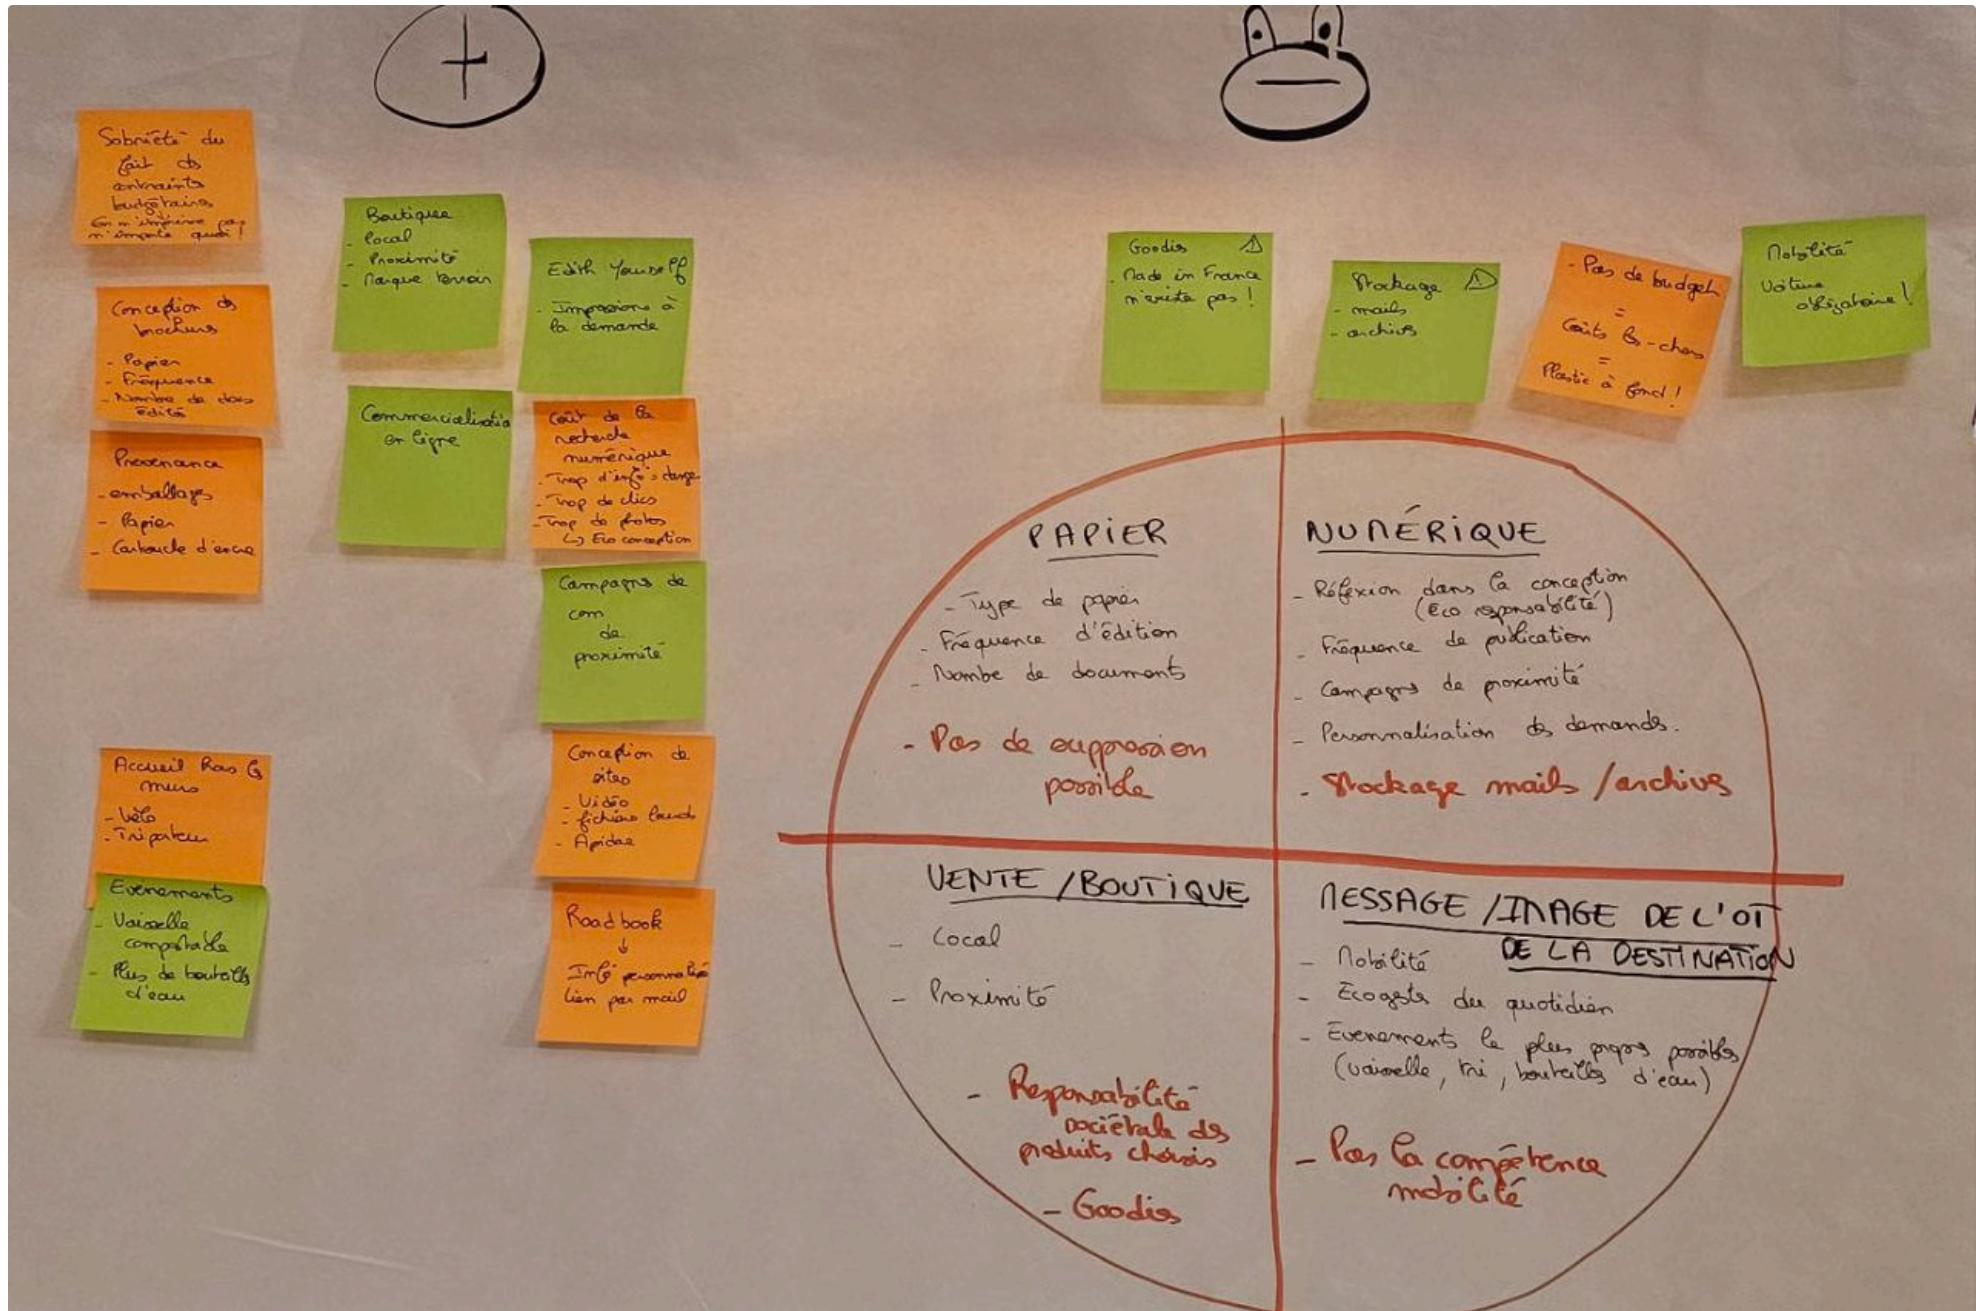 +
Sobriété du
fait ds
contraints
budgétaires
On n'imprime pas
n'importe quoi !
Conception ds
brochures
- Papier
- Fréquence
- Nombre de docs
édités
Provenance
- emballages
- Papier
- Cartouche d'encre
Accueil hors ls
murs
- Vélo
- Triporteur
Evènements
- Vaisselle
compostable
- Plus de bouteilles
d'eau
Boutique
- Local
- Proximité
- Marque terroir
Commercialisatio
en ligne
Edith Yourself
- Impressions à
la demande
Coût de la
recherche
numérique
- Trop d'info
- Trop de clics
- Trop de photos
↳ Eco conception
Campagns de
com
de
proximité
Conception de
sites
- Vidéo
- fichiers lourds
- Apidae
Roadbook
↓
Info personnalisée
lien par mail
−
Goodies ⚠
- Made in France
n'existe pas !
Stockage ⚠
- mails
- archives
- Pas de budget
=
Coûts ls - chers
=
Plastic à fond !
Mobilité
Voiture
obligatoire !
PAPIER
- Type de papier
- Fréquence d'édition
- Nombe de documents
- Pas de suppression
possible
NUMÉRIQUE
- Réflexion dans la conception
(Eco responsabilité)
- Fréquence de publication
- Campagns de proximité
- Personnalisation ds demands.
- Stockage mails / archives
VENTE / BOUTIQUE
- Local
- Proximité
- Responsabilité
sociétale ds
produits choisis
- Goodies
MESSAGE / IMAGE DE L'OT
DE LA DESTINATION
- Mobilité
- Ecogests du quotidien
- Evenements le plus propre possibles
(vaisselle, tri, bouteilles d'eau)
- Pas la compétence
mobilité